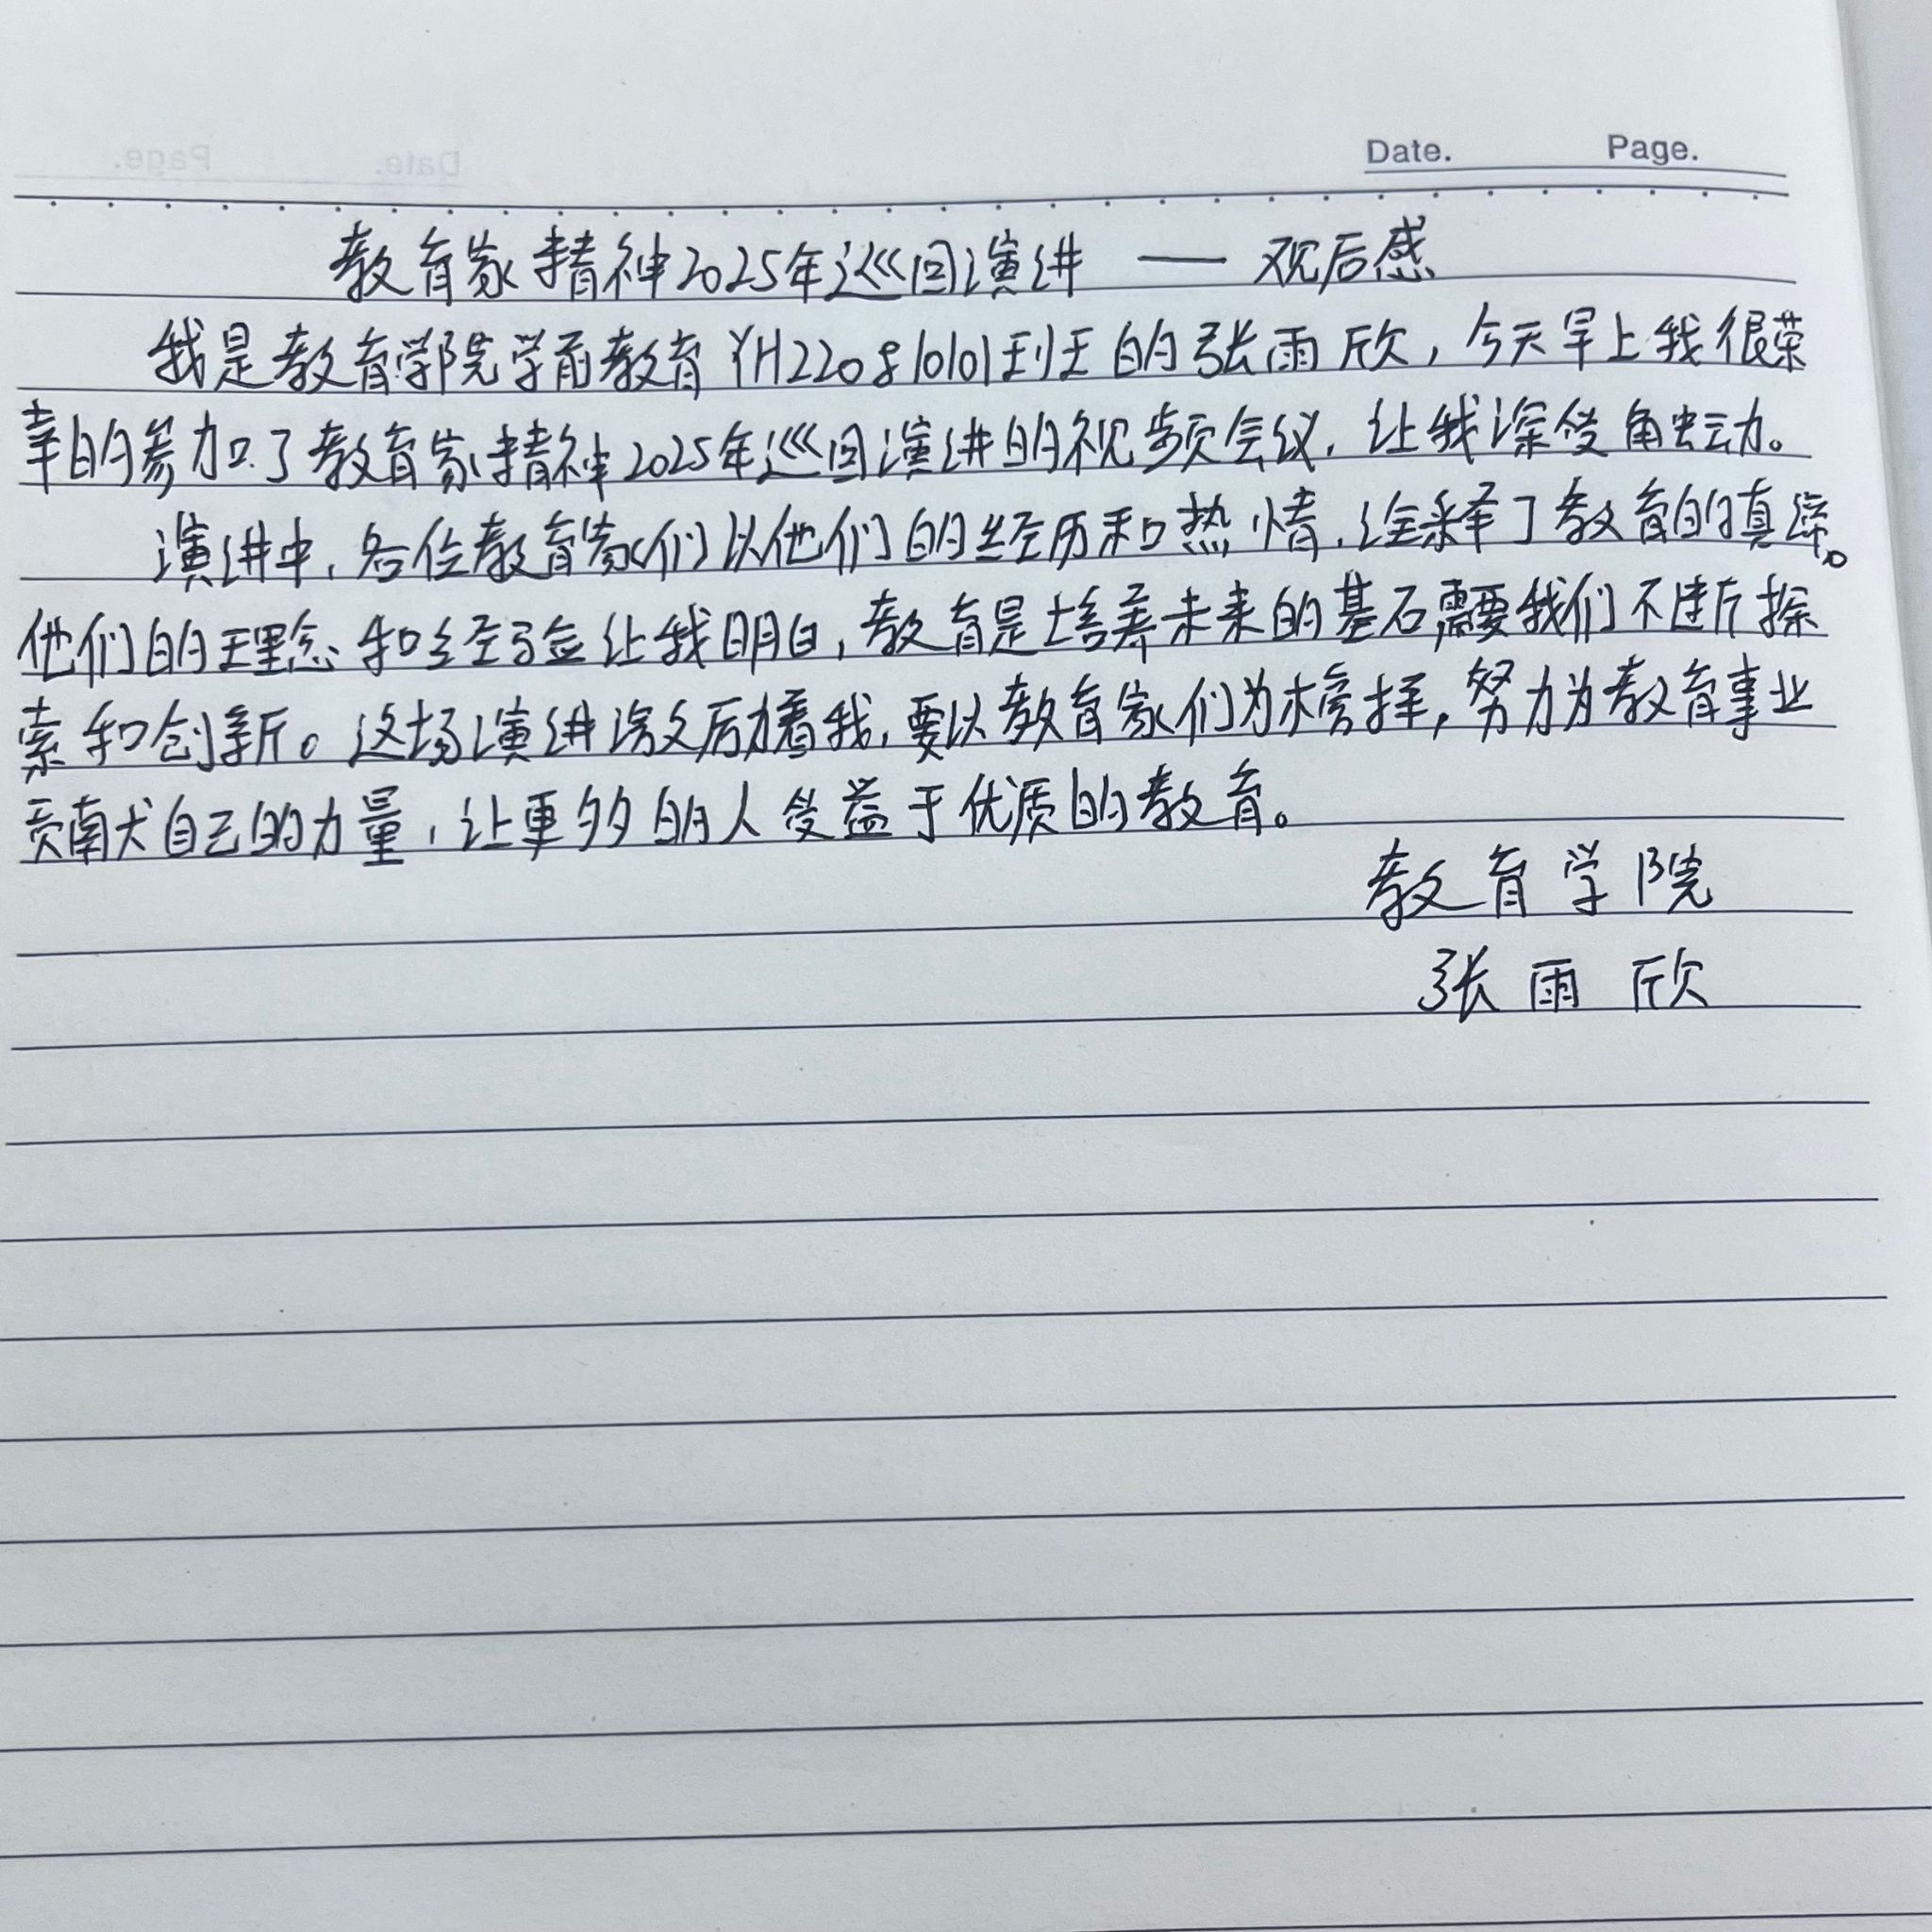 Date. Page.
教育家精神2025年巡回演讲 — 观后感
我是教育学院学前教育YH220810101班的张雨欣，今天早上我很荣
幸的参加了教育家精神2025年巡回演讲的视频会议，让我深受触动。
演讲中，各位教育家们以他们的经历和热情，诠释了教育的真谛。
他们的理念和经验让我明白，教育是培养未来的基石需要我们不断探
索和创新。这场演讲激励着我，要以教育家们为榜样，努力为教育事业
贡献自己的力量，让更多的人受益于优质的教育。
教育学院
张雨欣